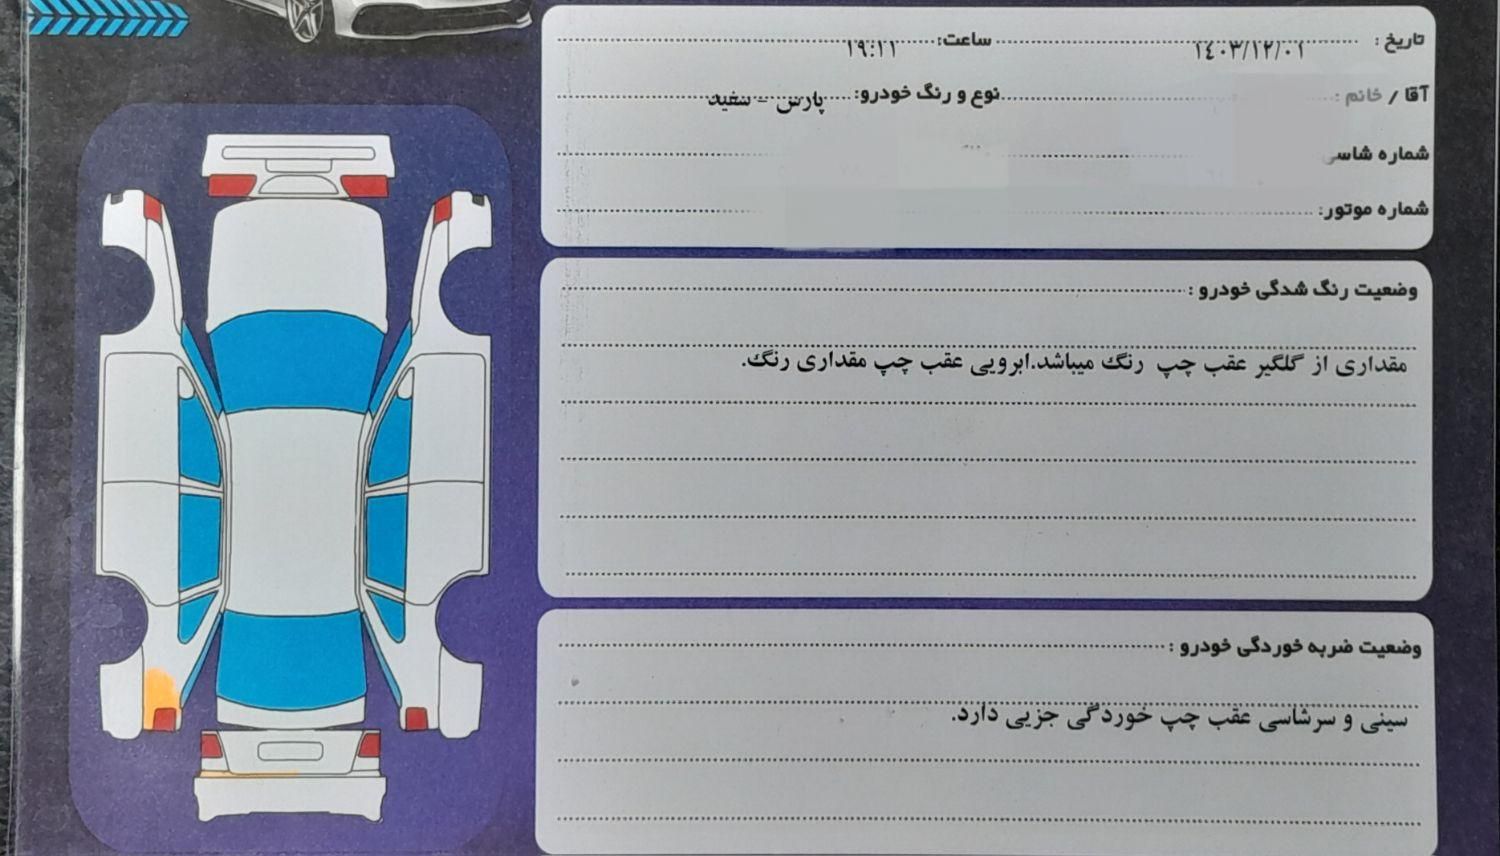 تاریخ : ١٤٠٣/١٢/٠١ ساعت: ١٩:١١
آقا / خانم : نوع و رنگ خودرو: پارس - سفید
شماره شاسی
شماره موتور:
وضعیت رنگ شدگی خودرو :
مقداری از گلگیر عقب چپ رنگ میباشد.ابرویی عقب چپ مقداری رنگ.
وضعیت ضربه خوردگی خودرو :
سینی و سرشاسی عقب چپ خوردگی جزیی دارد.